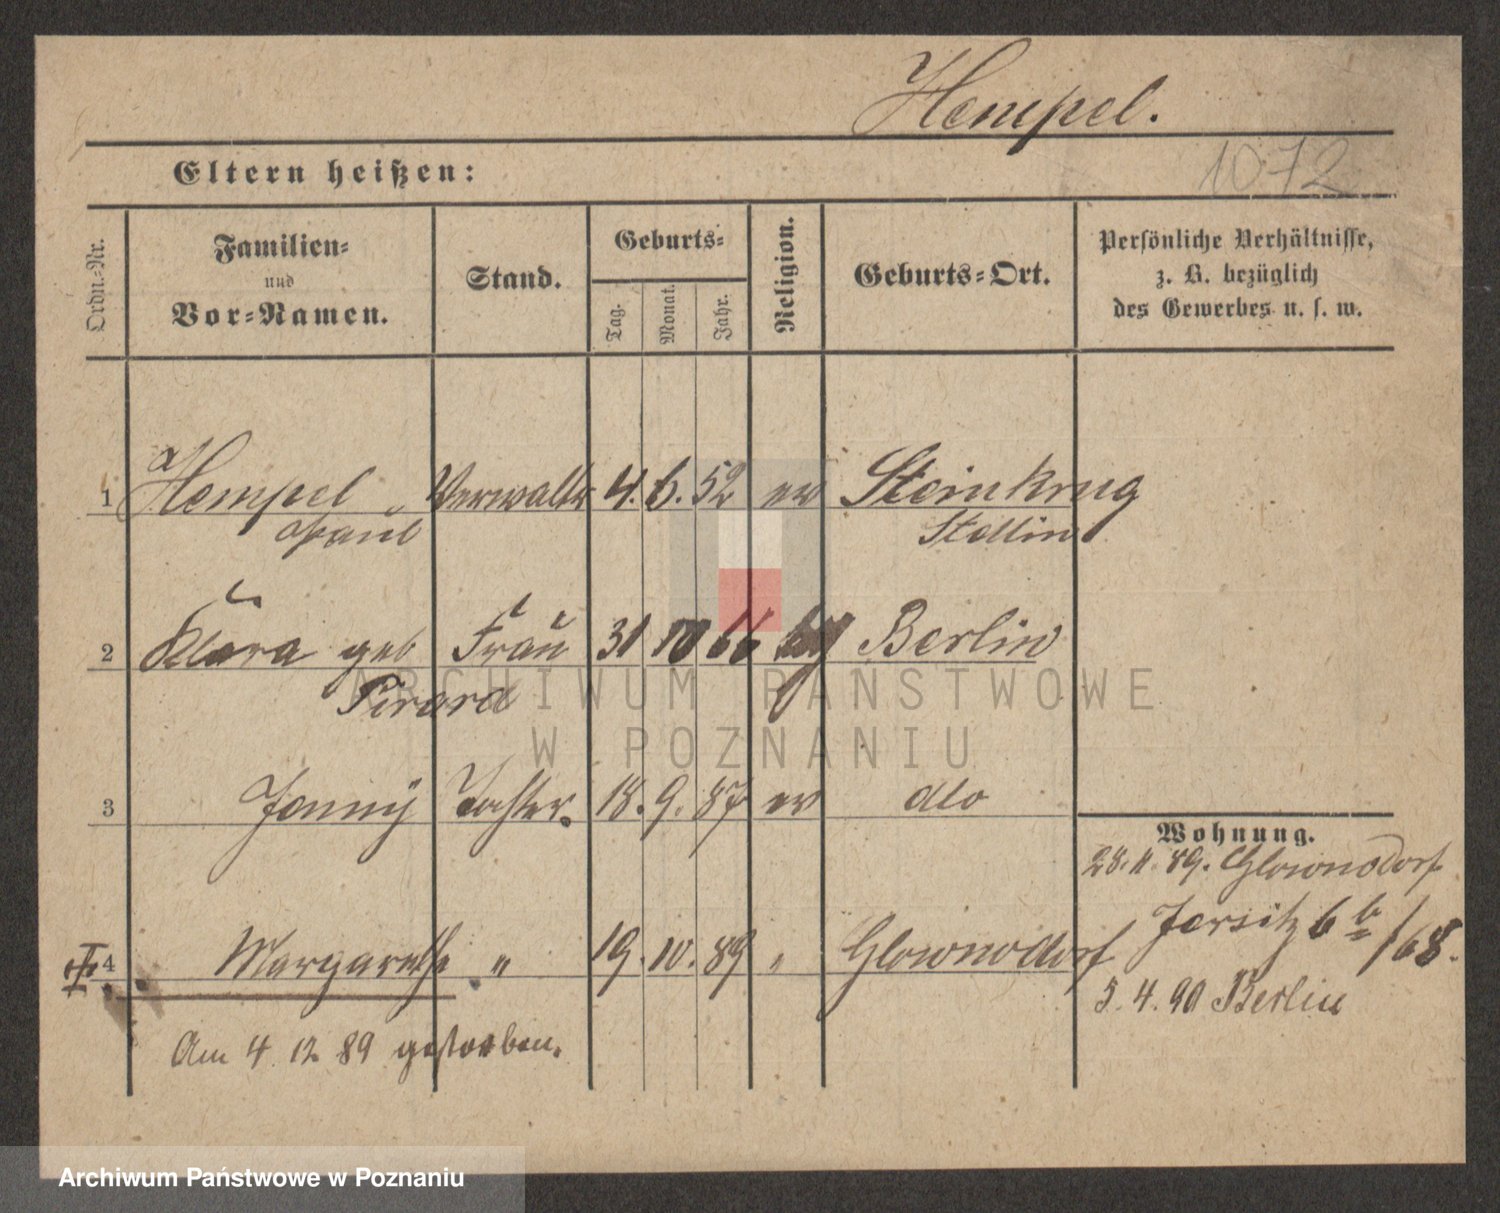 Hempel.
1072
Eltern heißen:
Ordn.-Nr.
Familien-
und
Vor-Namen.
Stand.
Geburts-
Tag.
Monat.
Jahr.
Religion.
Geburts-Ort.
Persönliche Verhältnisse,
z. B. bezüglich
des Gewerbes u. s. w.
1 Hempel Verwaltr 4. 6. 52 ev Steinkrug
Paul Stettin
2 Klara geb Frau 31 10 66 Berlin
Pirard
3 Jenny Tochter. 18. 9. 87 ev dto
Wohnung.
28.11.89. Glownodorf
Jersitz 6 b/68.
4 Margarethe " 19. 10. 89 " Glownodorf
5.4.90 Berlin
Am 4 12 89 gestorben.
ARCHIWUM PAŃSTWOWE
W POZNANIU
Archiwum Państwowe w Poznaniu